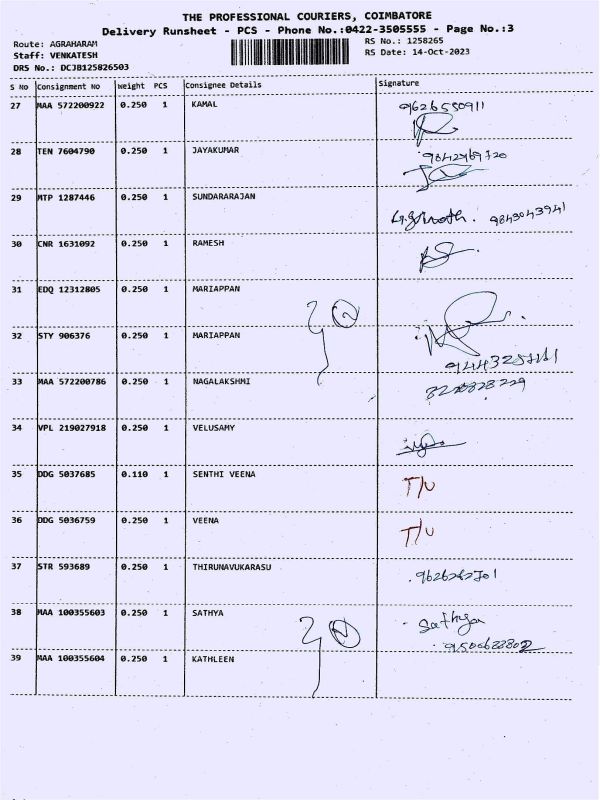 THE PROFESSIONAL COURIERS, COIMBATORE
Delivery Runsheet - PCS - Phone No.:0422-3505555 - Page No.:3
Route: AGRAHARAM
RS No.: 1258265
Staff: VENKATESH
RS Date: 14-Oct-2023
DRS No.: DCJB125826503
S No Consignment No Weight PCS Consignee Details Signature
27 MAA 572200922 0.250 1 KAMAL 9626550911
28 TEN 7604790 0.250 1 JAYAKUMAR
29 MTP 1287446 0.250 1 SUNDARARAJAN 9843043941
30 CNR 1631092 0.250 1 RAMESH
31 EDQ 12312805 0.250 1 MARIAPPAN
32 STY 906376 0.250 1 MARIAPPAN
33 MAA 572200786 0.250 1 NAGALAKSHMI
34 VPL 219027918 0.250 1 VELUSAMY
35 DDG 5037685 0.110 1 SENTHI VEENA T/U
36 DDG 5036759 0.250 1 VEENA T/U
37 STR 593689 0.250 1 THIRUNAVUKARASU
38 MAA 100355603 0.250 1 SATHYA Sathya
39 MAA 100355604 0.250 1 KATHLEEN